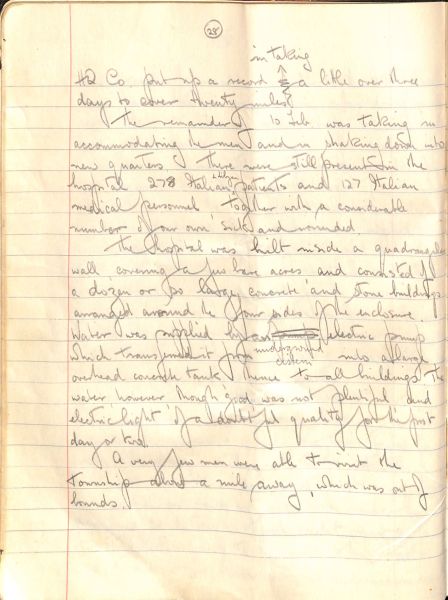 28
in taking
HQ Co. put up a record a little over three
days to cover twenty miles
The remainder of 10 Feb. was taking in
accommodating the men and in shaking down into
new quarters. There were still present in the
hospital 278 Italian patients and 127 Italian
medical personnel together with a considerable
number of our own sick and wounded.
The hospital was built inside a quadrangular
wall covering a few bare acres and consisted of
a dozen or so large concrete and stone buildings
arranged around the four sides of the enclosure.
Water was supplied by an electric pump
which transferred it from underground cistern into a large
overhead concrete tank & thence to all buildings. The
water however though good was not plentiful and
electric light of a doubtful quality for the first
day or two.
A very few men were able to visit the
township about a mile away, which was out of
bounds.